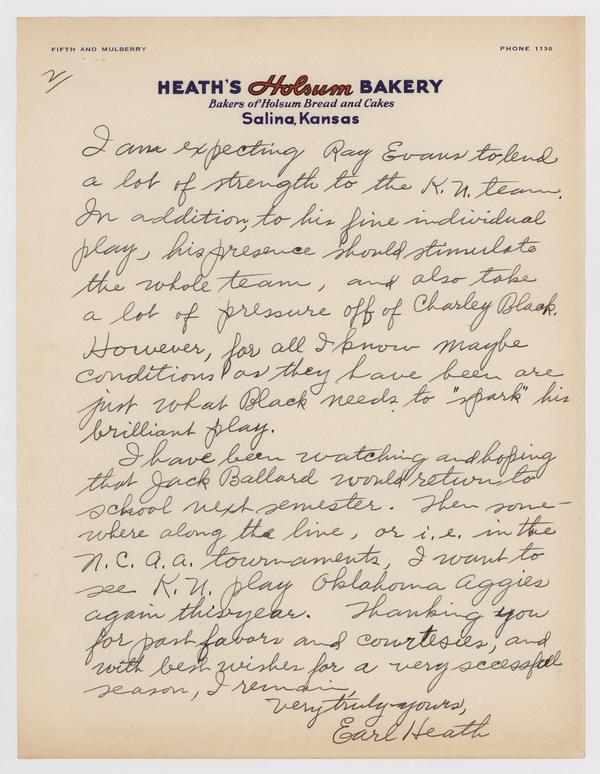 FIFTH AND MULBERRY
PHONE 1130
2/
HEATH'S Holsum BAKERY
Bakers of Holsum Bread and Cakes
Salina, Kansas
I am expecting Ray Evans to lend
a lot of strength to the K.U. team.
In addition, to his fine individual
play, his presence should stimulate
the whole team, and also take
a lot of pressure off of Charley Black.
However, for all I know maybe
conditions as they have been are
just what Black needs to "spark" his
brilliant play.
I have been watching and hoping
that Jack Ballard would return to
school next semester. Then some-
where along the line, or i.e. in the
N.C.A.A. tournaments, I want to
see K.U. play Oklahoma Aggies
again this year. Thanking you
for past favors and courtesies, and
with best wishes for a very sccessfull
season, I remain,
Very truly yours,
Earl Heath